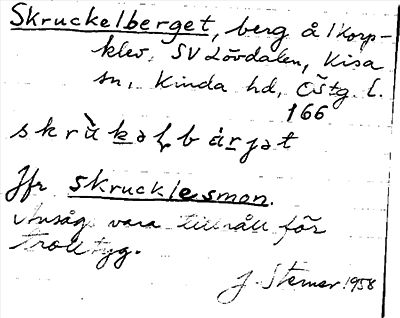 Skruckelberget, berg å Korp-
klev, SV Lövdalen, Kisa
sn, Kinda hd, Östg. l.
166
skrùkəl bárjət
Jfr Skrucklesmon.
Ansågs vara tillhåll för
trolltyg.
J. Sterner 1958